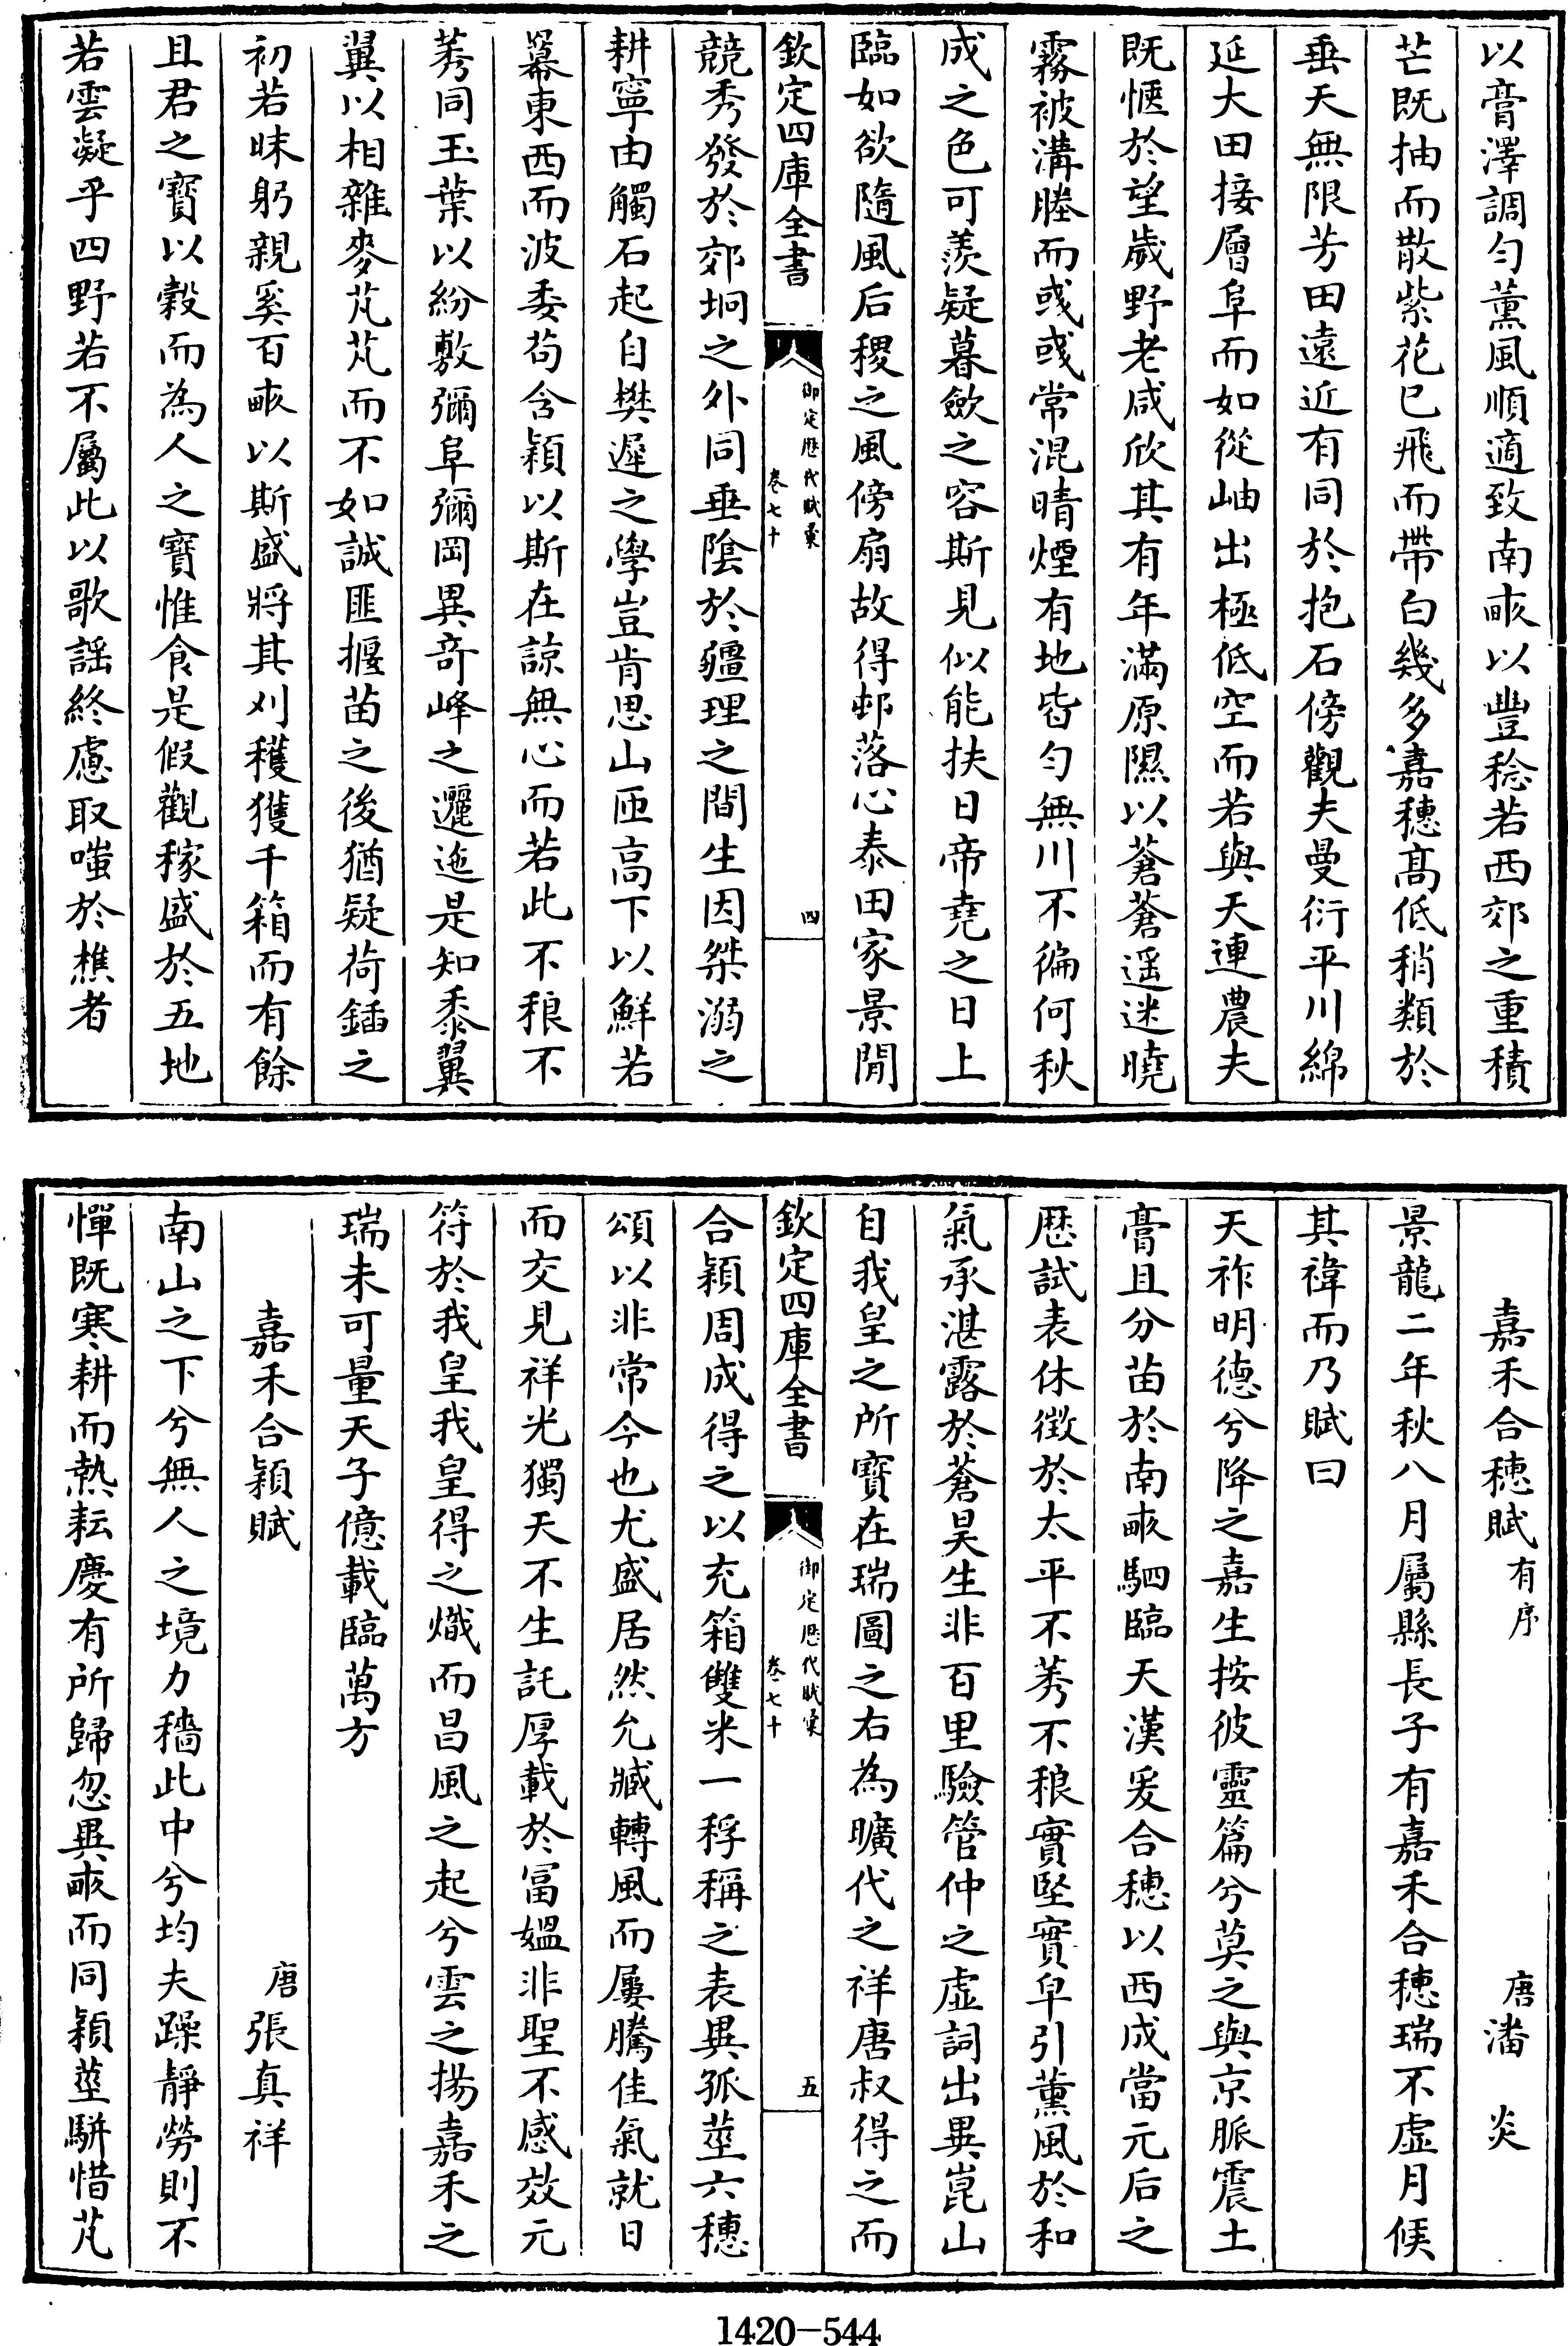 以膏澤調勻薰風順適致南畞以豐稔若西郊之重積
芒既抽而散紫花已飛而帶白幾多嘉穗髙低稍類於
垂天無限芳田遠近有同於抱石傍觀夫曼衍平川綿
延大田接層阜而如從岫出極低空而若與天連農夫
既愜於望歲野老咸欣其有年滿原隰以蒼蒼遥迷曉
霧被溝塍而彧彧常混晴煙有地皆勻無川不徧何秋
成之色可羨疑暮斂之容斯見似能扶日帝堯之日上
臨如欲隨風后稷之風傍扇故得邨落心泰田家景閒
欽定四庫全書
御定歴代賦彙
卷七十
四
競秀發於郊坰之外同垂陰於疆理之間生因桀溺之
耕寧由觸石起自樊遲之學豈肯思山匝高下以鮮若
羃東西而波委苟含穎以斯在諒無心而若此不稂不
莠同玉葉以紛敷彌阜彌岡異奇峰之邐迤是知黍翼
翼以相雜麥芃芃而不如誠匪揠苗之後猶疑荷鍤之
初若昧躬親奚百畞以斯盛將其刈穫獲千箱而有餘
且君之寶以穀而為人之寶惟食是假觀稼盛於五地
若雲凝乎四野若不屬此以歌謡終慮取嗤於樵者
嘉禾合穗賦 有序 唐潘炎
景龍二年秋八月屬縣長子有嘉禾合穗瑞不虚月候
其禕而乃賦曰
天祚明德兮降之嘉生按彼靈篇兮莫之與京脈震土
膏且分苗於南畞駟臨天漢爰合穗以西成當元后之
歴試表休徴於太平不莠不稂實堅實皁引薰風於和
氣承湛露於蒼昊生非百里驗管仲之虚詞出異崑山
自我皇之所寶在瑞圖之右為曠代之祥唐叔得之而
欽定四庫全書
御定歴代賦彙
卷七十
五
合穎周成得之以充箱雙米一稃稱之表異孤莖六穗
頌以非常今也尤盛居然允臧轉風而屢騰佳氣就日
而交見祥光獨天不生託厚載於富媪非聖不感效元
符於我皇我皇得之熾而昌風之起兮雲之揚嘉禾之
瑞未可量天子億載臨萬方
嘉禾合穎賦 唐張真祥
南山之下兮無人之境力穡此中兮均夫躁靜勞則不
憚既寒耕而熱耘慶有所歸忽異畞而同穎莖駢惜芃
1420-544